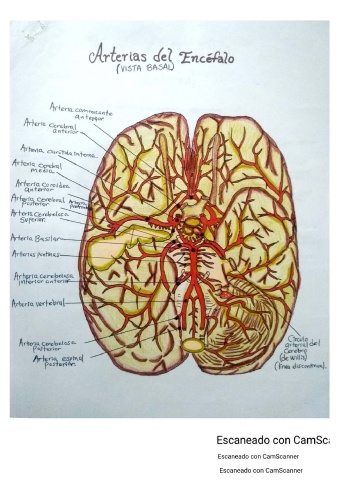 Arterias del Encéfalo
(VISTA BASAL)
Arteria comunicante
anterior
Arteria cerebral
anterior
Arteria carótida interna.
Arteria cerebral
media
Arteria Coroidea
anterior
Arteria cerebral
posterior
Arteria cerebelosa
Superior
Arteria Basilar
Arterias pontinas
Arteria cerebelosa
inferior anterior
Arteria vertebral
Arteria cerebelosa
posterior
Arteria espinal
posterior
Circulo
arterial del
Cerebro
(de Willis)
(línea discontinua).
Escaneado con CamSca
Escaneado con CamScanner
Escaneado con CamScanner